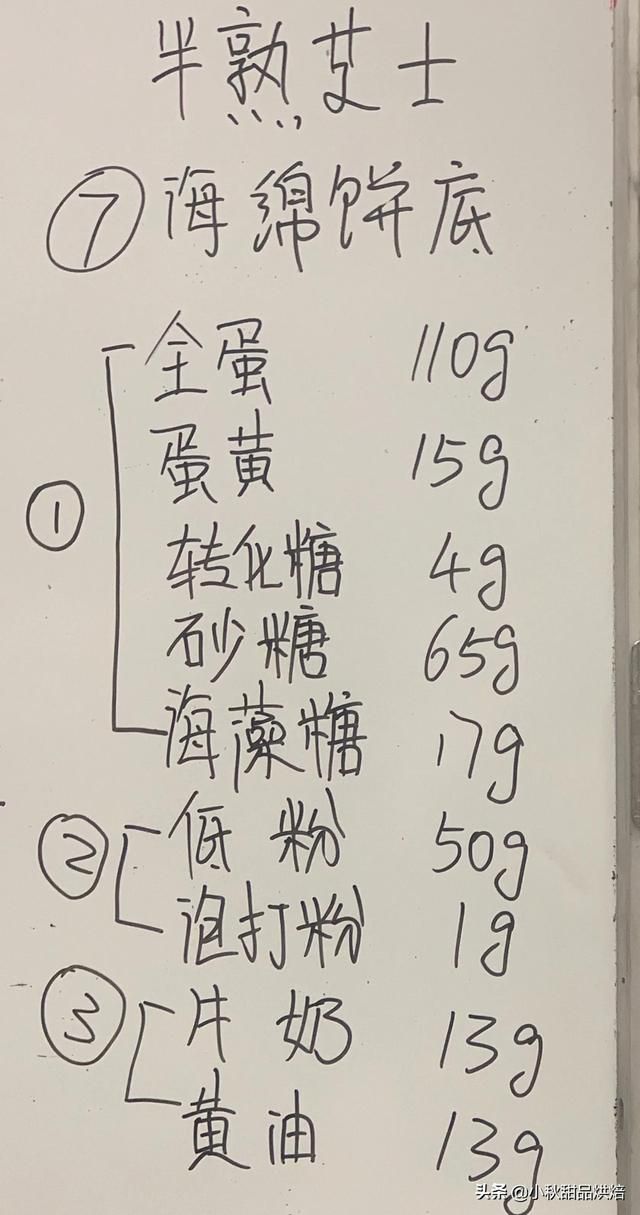 半熟芝士
⑦海绵饼底
全蛋 110g
蛋黄 15g
① 转化糖 4g
砂糖 65g
海藻糖 17g
② 低粉 50g
泡打粉 1g
③ 牛奶 13g
黄油 13g
头条@小秋甜品烘焙